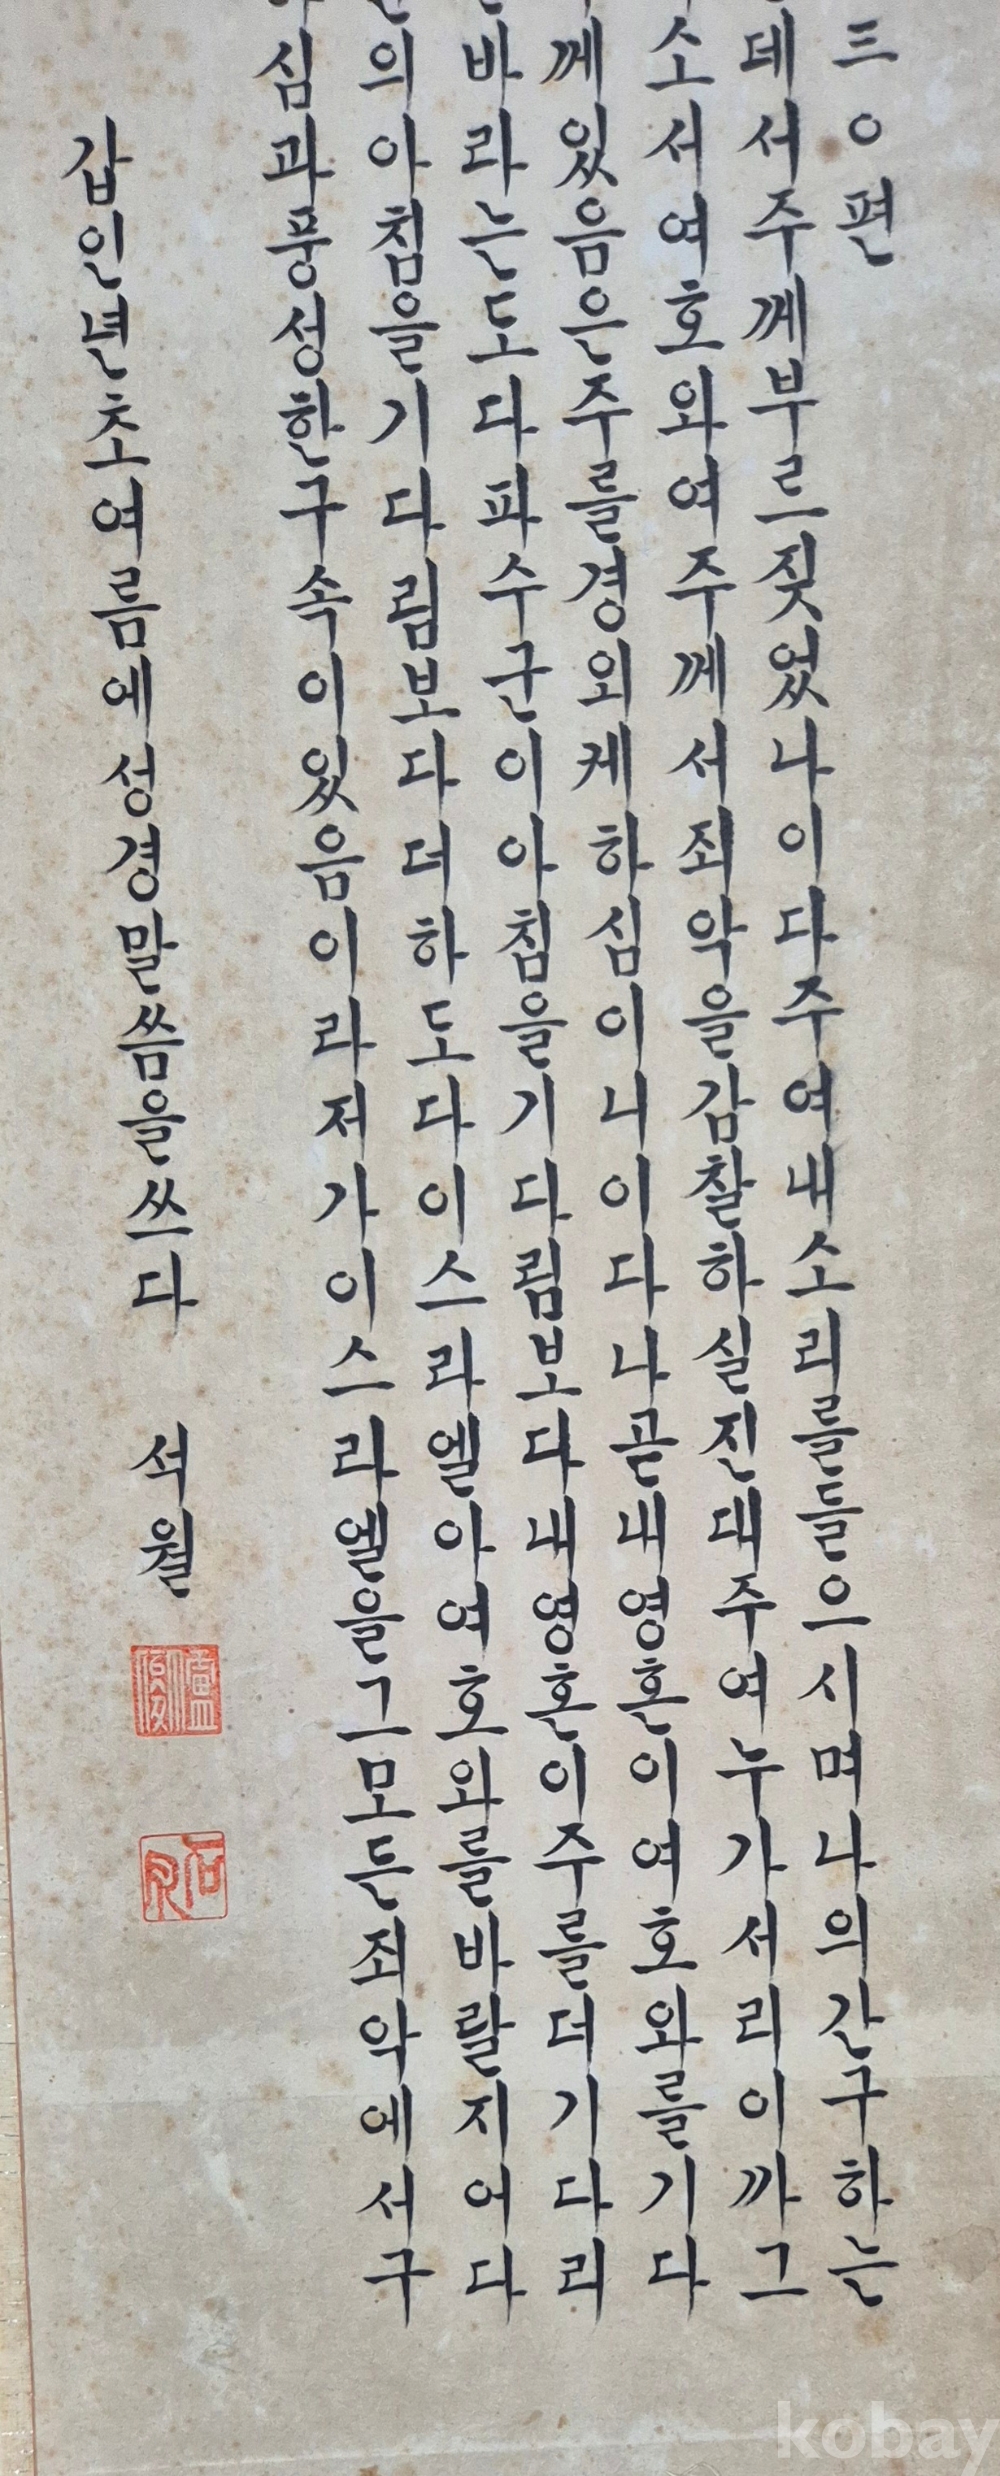 三○편
데서주께부르짖었나이다주여내소리를들으시며나의간구하는
소서여호와여주께서죄악을감찰하실진대주여누가서리이까그
께있음은주를경외케하심이니이다나곧내영혼이여호와를기다
바라는도다파수군이아침을기다림보다내영혼이주를더기다리
의아침을기다림보다더하도다이스라엘아여호와를바랄지어다
심과풍성한구속이있음이라저가이스라엘을그모든죄악에서구
갑인년초여름에성경말씀을쓰다 석월
石月
kobay